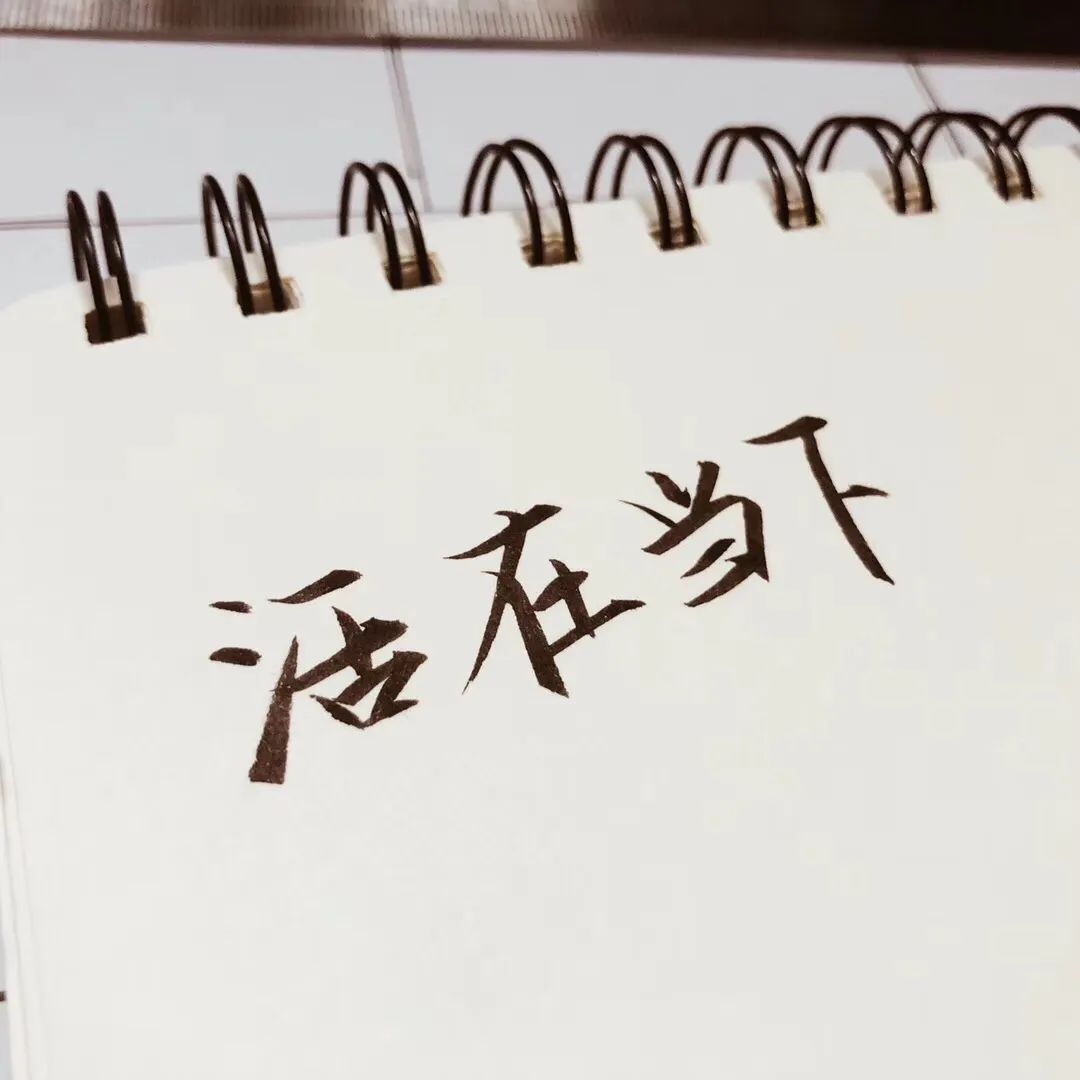 活在当下